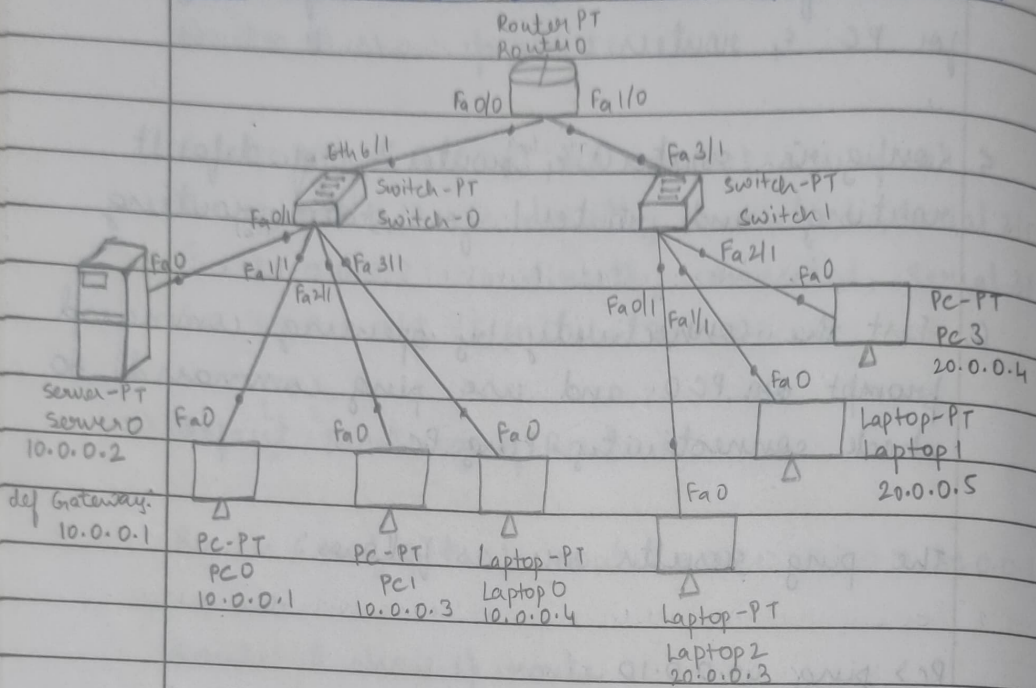 Router PT
Router0
Fa0/0
Fa1/0
Eth6/1
Fa3/1
Switch-PT
Switch-0
Switch-PT
Switch1
Fa0/1
Fa0
Fa1/1
Fa2/1
Fa3/1
Fa2/1
Fa0
Fa0/1
Fa1/1
PC-PT
PC3
20.0.0.4
Server-PT
Server0
10.0.0.2
def Gateway:
10.0.0.1
Fa0
Fa0
Fa0
Fa0
Laptop-PT
Laptop1
20.0.0.5
Fa0
PC-PT
PC0
10.0.0.1
PC-PT
PC1
10.0.0.3
Laptop-PT
Laptop0
10.0.0.4
Laptop-PT
Laptop2
20.0.0.3